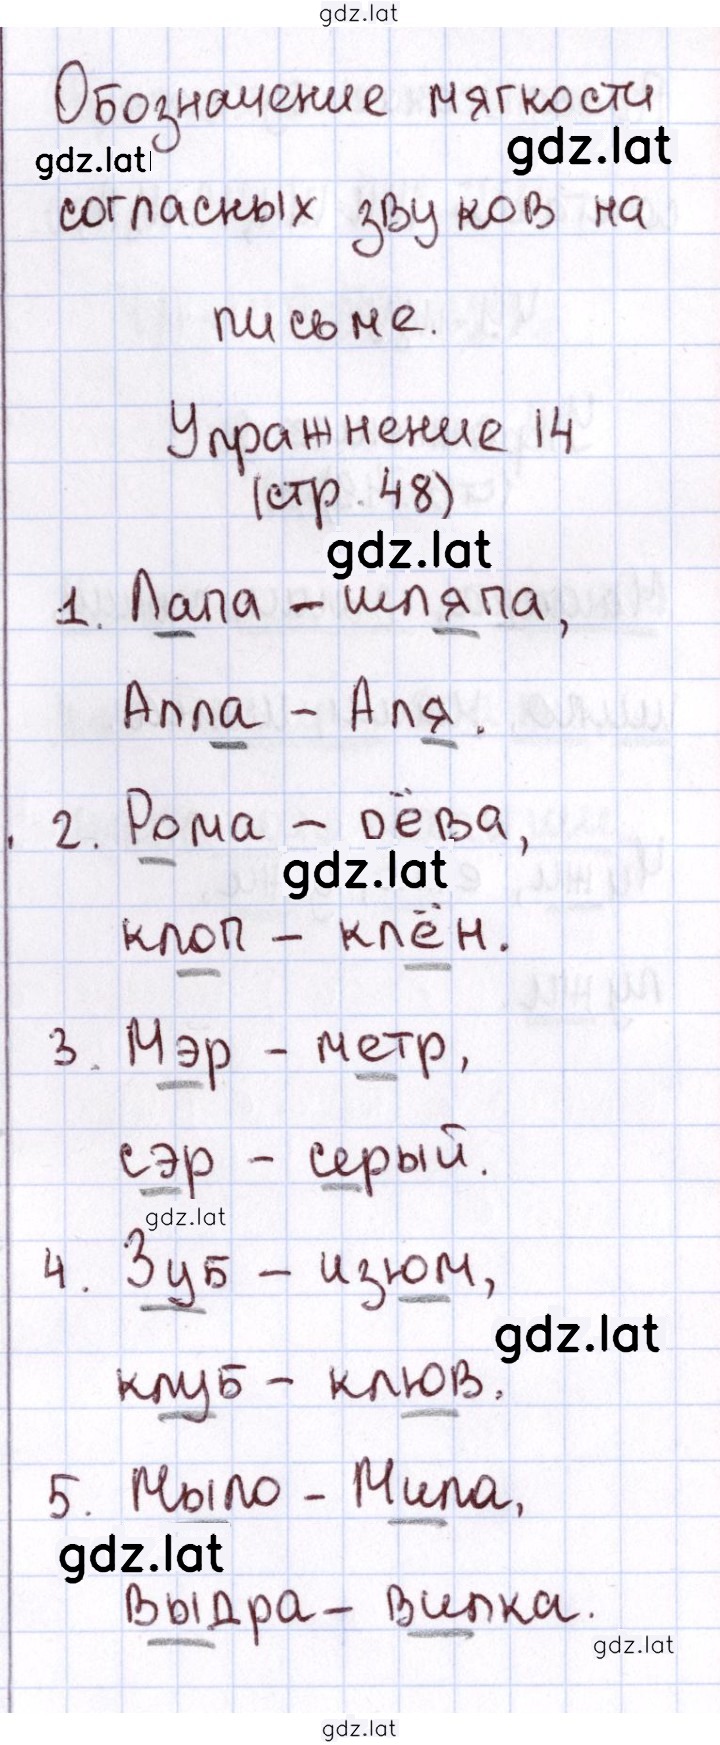 gdz.lat
Обозначение мягкости
gdz.lat gdz.lat
согласных звуков на
письме.
Упражнение 14
(стр. 48)
gdz.lat
1. Лапа – шляпа,
Алла – Аля.
2. Рома – рёва,
gdz.lat
клоп – клён.
3. Мэр – метр,
сэр – серый.
gdz.lat
4. Зуб – изюм,
gdz.lat
клуб – клюв.
5. Мыло – Мила,
gdz.lat
выдра – вилка.
gdz.lat
gdz.lat